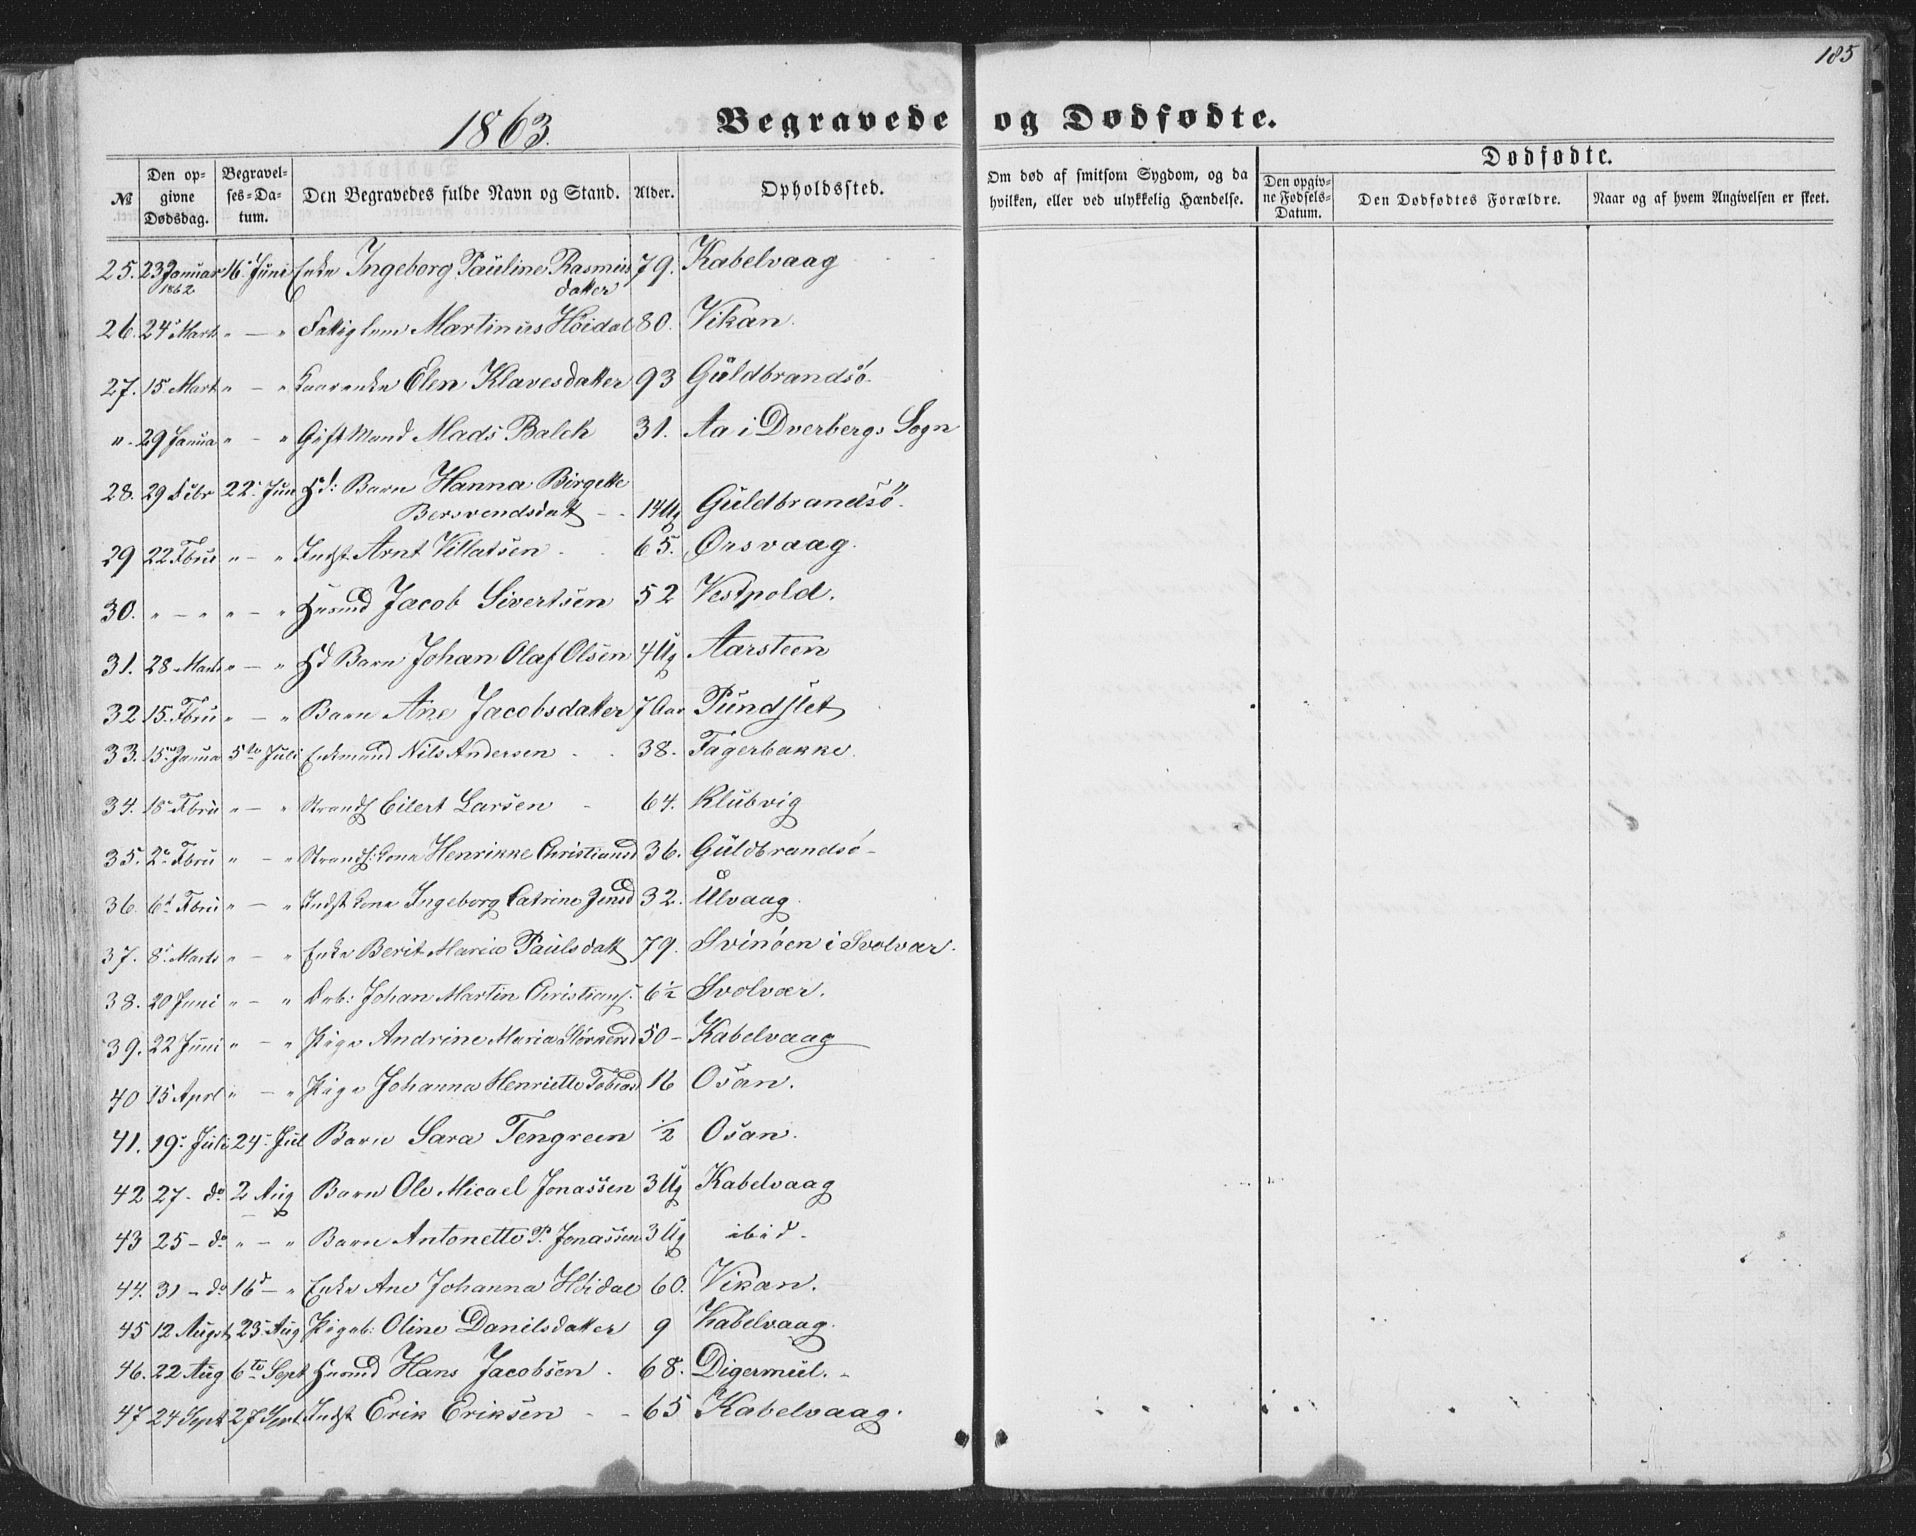 185
1863.
Begravede og Dødfødte.
№
Den opgivne Dødsdag.
Begravelses-Datum.
Den Begravedes fulde Navn og Stand.
Alder.
Opholdssted.
Om død af smitsom Sygdom, og da hvilken, eller ved ulykkelig Hændelse.
Dødfødte.
Den opgivne Fødsels-Datum.
Den Dødfødtes Forældre.
Naar og af hvem Angivelsen er skeet.
25. 23 Januar 1862 16 Juni Enke Ingeborg Pauline Rasmusdatter 79. Kabelvaag
26. 24 Marts " — " Fattiglem Martinus Høidal 80. Vikan.
27. 15 Mart " — " Kaarenke Elen Klavesdatter 93 Güldbrandsø
". 29 Janua " — " Gift Mand Mads Balch 31. Aa i Dverbergs Sogn
28. 29 Febr 22 Jun Hd: Barn Hanna Birgette
Bersvendsdatt - - 14 Ug Güldbrandsø.
29 22 Fbru " — " Indst Arnt Villatsen 65. Ørsvaag.
30. " — " " — " Husmd Jacob Sivertsen 52 Vestpold.
31. 28 Marts " — " Hd Barn Johan Olaf Olsen 4 Ug Aarsteen
32 15. Fbru " — " Barn Ane Jacobsdatter 7 Aar Pundslet
33. 15 Janua 5te Juli Enkmand Nils Andersen 38. Fagerbakke
34. 18 Fbru " — " Strands Eilert Larsen - 64. Klubvig
35. 2 Fbru " — " Strands: Kone Henrikke Christiansd 36. Güldbrandsø -
36. 6t Fbru " — " Indst Kone Ingeborg Catrine Jensd 32. Ulvaag.
37. 8 Marts " — " Enke Berit Maria Paulsdatt 79. Svinøen i Svolvær.
38. 20 Juni " — " Drb: Johan Martin Christians. 6½ Svolvær.
39. 22 Juni " — " Pige Andrine Maria Størkersd 50 - Kabelvaag
40 15 Aprl " — " Pige Johanna Henriette Tobiasd 16 Osan.
41. 19 Juli 24 Jul Barn Sara Tengreen ½ Osan.
42 27 - do 2 Aug Barn Ole Micael Jonassen 3 Ug Kabelvaag
43 25 - do " — " Barn Antonette P. Jonassen 3 Ug ibid -
44. 31 - do 16d — " Enke Ane Johanna Høidal 60. Vikan.
45 12 August 23 Aug Pigeb: Oline Danilsdatter 9 Kabelvaag.
46. 22 Aug 6te Sept Husmd Hans Jacobsen. 68. Digermül. -
47 24 Sept 27 Sept Indst Erik Eriksen - - 65 Kabelvaag.